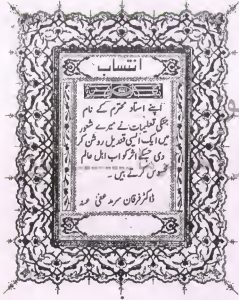 انتساب
اپنے استاد محترم کے نام
جنکی تعلیمات نے میرے شعور
میں ایک ایسی قندیل روشن کر
دی جسکے اثر کو اب اہل عالم
محسوس کرتے ہیں۔
ڈاکٹر فرقان سرمد عفی عنہ